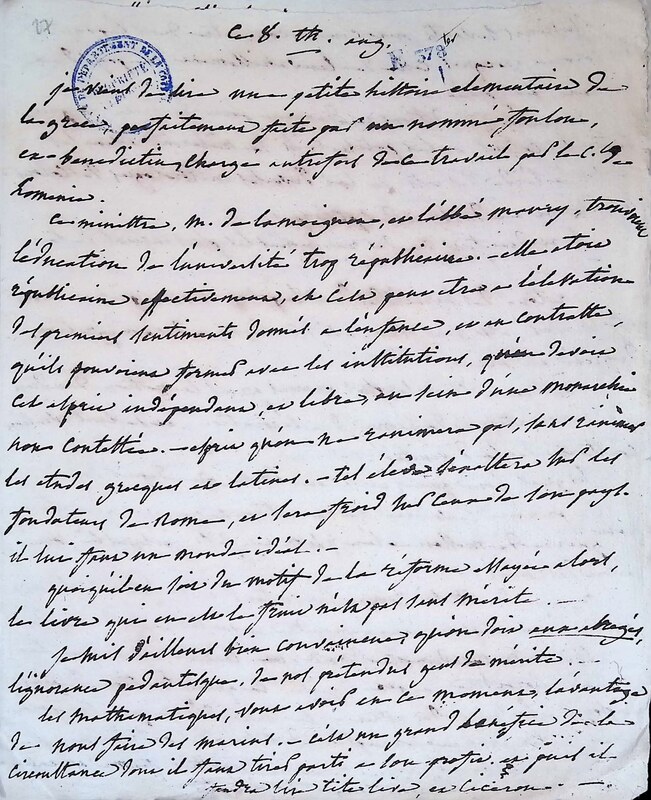 27
ce 8. th. aug.
N° 378 ter
je viens de lire une petite histoire elementaire de
la grece parfaitement faite par un nommé toulou,
ex-benedictin, chargé autrefois de ce travail par le C. de
Lomenie.
Ce ministre, m. de lamoignon, et l'abbé maury, trouvoient
l'éducation de l'université trop républicaine. - elle etoit
républicaine effectivement, et cela peut etre a l'elevation
des premiers sentiments donnés a l'enfance, et au contraste,
qu'ils pouvoient former avec les institutions, qu'on devoit
cet esprit indépendant, et libre, au sein d'une monarchie
non contestée. - esprit qu'on ne ranimera pas, sans ranimer
les etudes grecques et latines. - tel éleve s'exaltera sur les
fondateurs de Rome, et sera froid sur ceux de son pays.
il lui faut un monde idéal. -
quoiqu'il en soit du motif de la réforme essayée alors,
le livre qui en est le fruit n'est pas sans merite. -
je suis d'ailleurs bien convaincu, qu'on doit aux abrégés,
l'ignorance pédantesque, de nos prétendus gens de mérite. -
les mathematiques, vous avoit en ce moment, l'avantage
de nous faire des marins. - c'est un grand bénéfice de la
circonstance dont il faut tirer parti a son profit. et puis il
faudra lire tite live, et Ciceron. -